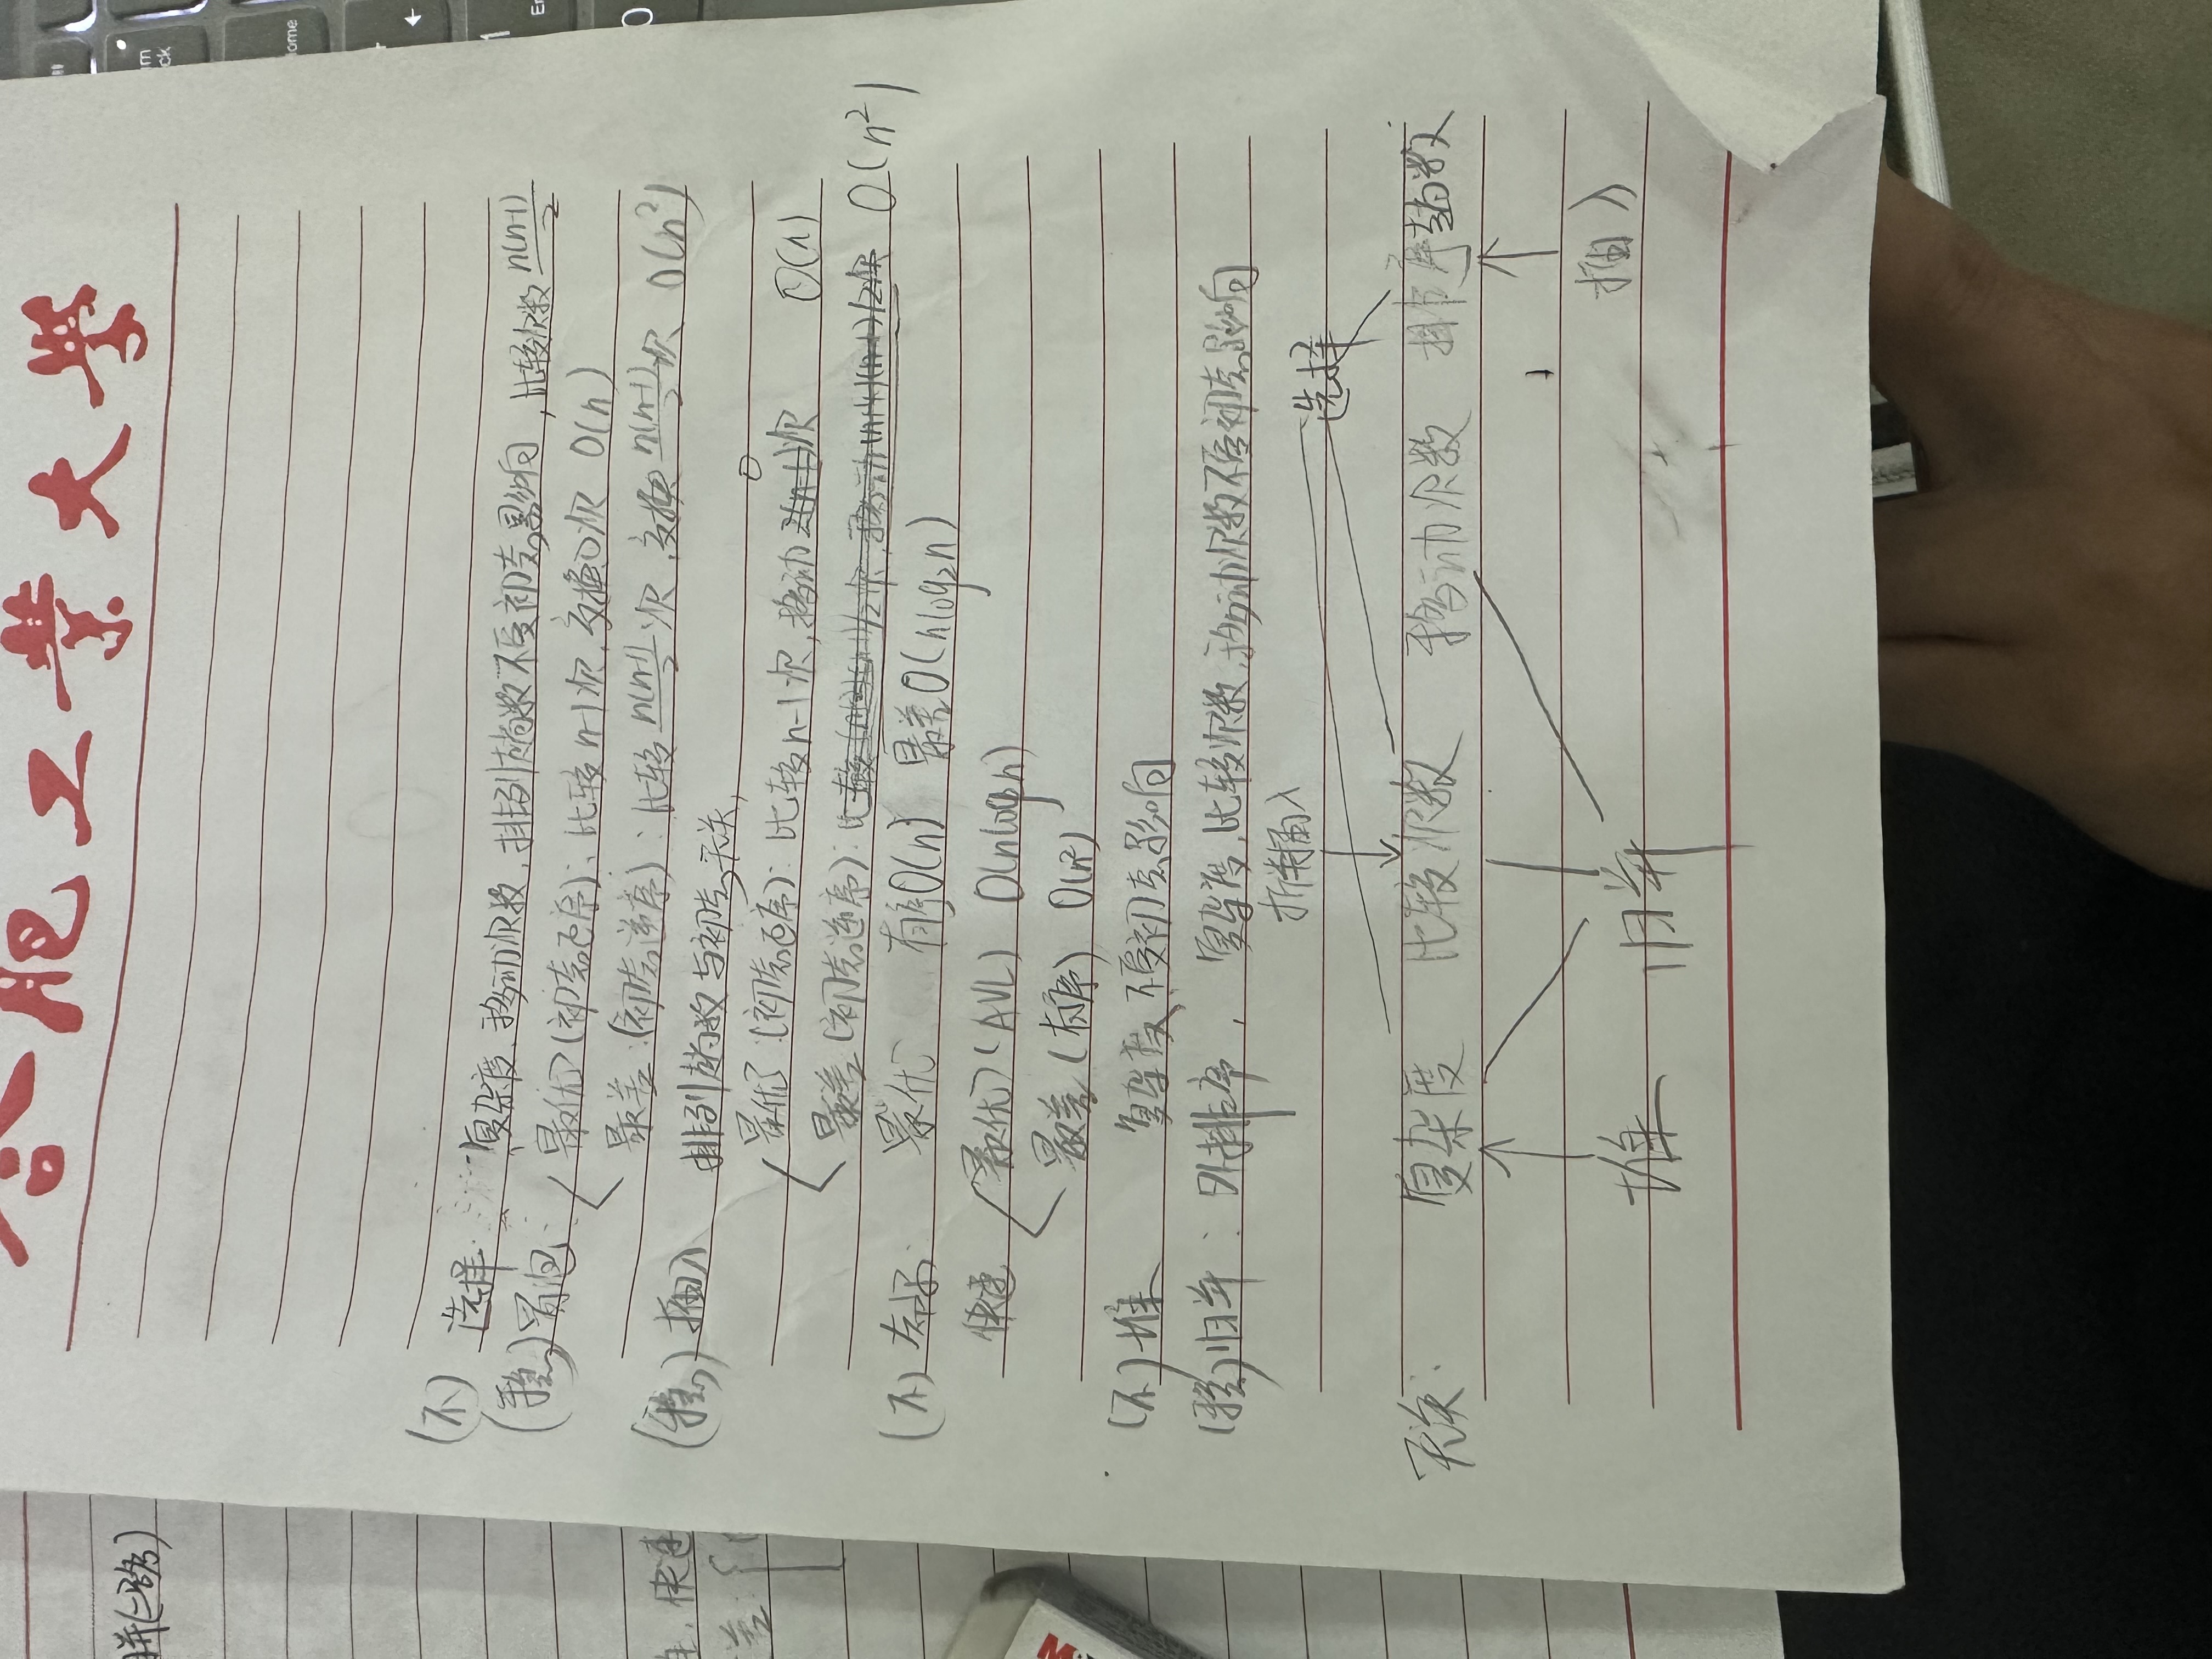 合肥工業大學
并(二路)
(不) 选择: 复杂度、移动次数,排列趟数不受初态影响,比较次数 n(n-1)/2
(稳) 冒泡: 最优(初态正序): 比较n-1次,交换0次 O(n)
最差:(初态逆序): 比较 n(n-1)/2 次,交换 n(n-1)/2 次 O(n²)
(稳) 插入 排列趟数与初态无关,
最优:(初态正序): 比较n-1次,移动 0 次 O(1)
最差(初态逆序): O(n²)
(不) 希尔: 最优 有序O(n) 最差O(nlog₂n)
快速 最优(AVL) O(nlog₂n)
最差(有序) O(n²)
(不) 堆 复杂度不受初态影响
(稳)归并: 外排序, 复杂度,比较次数,移动次数不受初态影响
折半插入
选择
无关: 复杂度 比较次数 移动次数 排序趟数
堆 归并 插入
快速
差:
Home